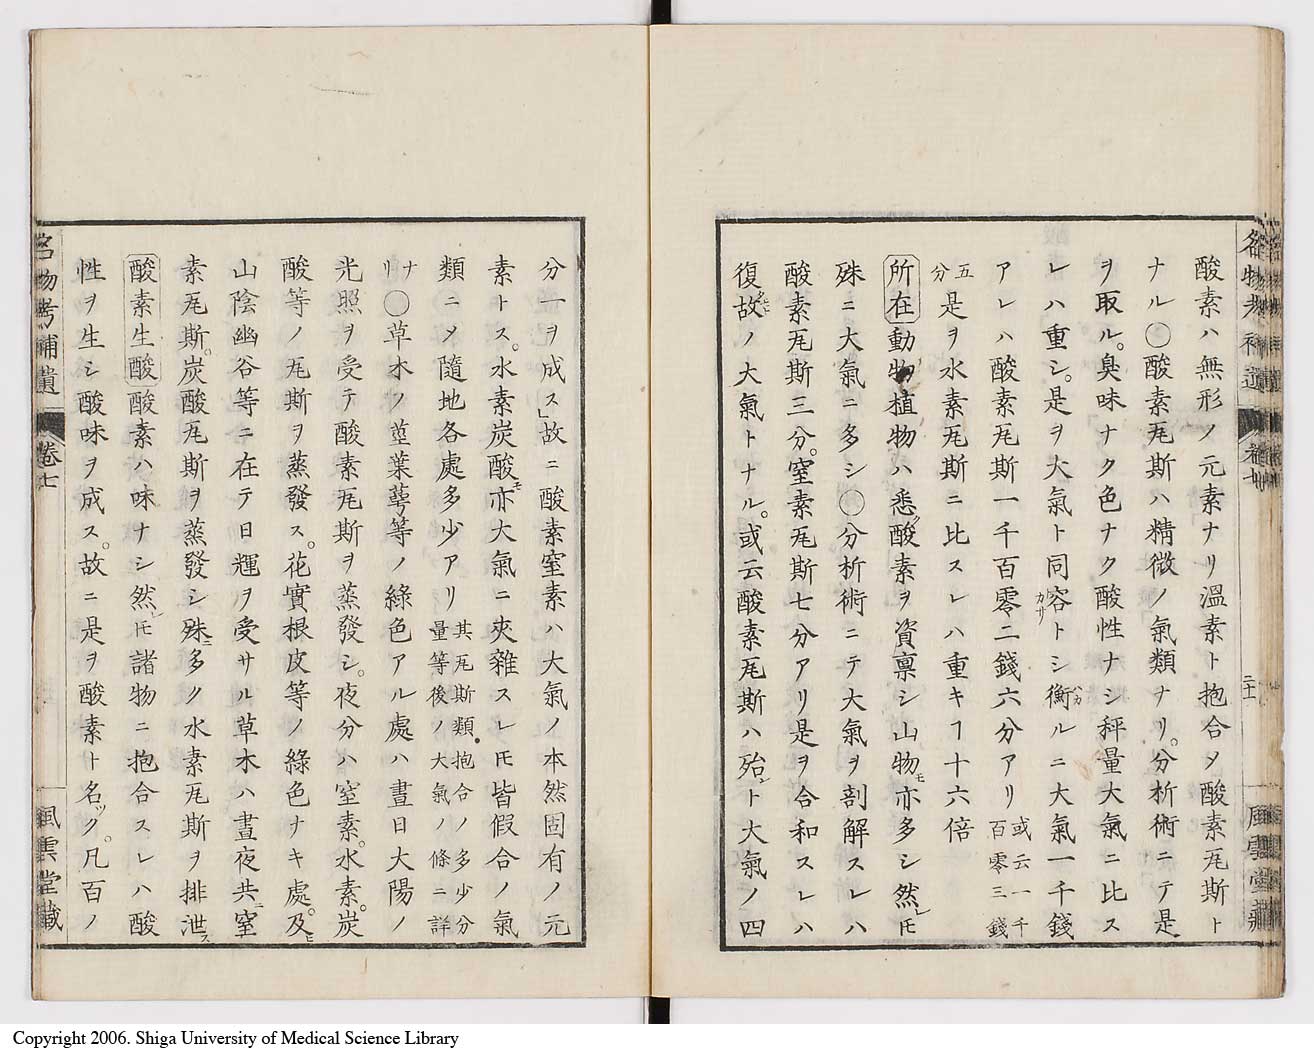 名物考補遺 卷七 二十一 風雲堂藏
酸素ハ無形ノ元素ナリ溫素ト抱合メ酸素瓦斯ト
ナル〇酸素瓦斯ハ精微ノ氣類ナリ。分析術ニテ是
ヲ取ル。臭味ナク色ナク酸性ナシ秤量大氣ニ比ス
レハ重シ。是ヲ大氣ト同容カサトシ衡ハカルニ大氣一千錢
アレハ酸素瓦斯一千百零二錢六分アリ或云一千百零三錢
五分是ヲ水素瓦斯ニ比スレハ重キヿ十六倍
所在動物植物ハ悉ク酸素ヲ資稟シ山物モ亦多シ然レ𪜈
殊ニ大氣ニ多シ〇分析術ニテ大氣ヲ剖解スレハ
酸素瓦斯三分。窒素瓦斯七分アリ是ヲ合和スレハ
復故タモトノ大氣トナル。或云酸素瓦斯ハ殆ント大氣ノ四
分一ヲ成ス」故ニ酸素窒素ハ大氣ノ本然固有ノ元
素トス。水素炭酸モ亦大氣ニ夾雜スレ𪜈皆假合ノ氣
類ニメ隨地各處多少アリ其瓦斯類抱合ノ多少分量等後ノ大氣ノ條ニ詳
ナリ〇草木ノ莖葉蕚等ノ綠色アル處ハ晝日大陽ノ
光照ヲ受テ酸素瓦斯ヲ蒸發シ。夜分ハ窒素。水素。炭
酸等ノ瓦斯ヲ蒸發ス。花實根皮等ノ綠色ナキ處。及ヒ
山陰幽谷等ニ在テ日輝ヲ受サル草木ハ晝夜共ニ窒
素瓦斯。炭酸瓦斯ヲ蒸發シ殊ニ多ク水素瓦斯ヲ排泄ス
酸素生酸酸素ハ味ナシ然レ𪜈諸物ニ抱合スレハ酸
性ヲ生シ酸味ヲ成ス。故ニ是ヲ酸素ト名ツク。凡百ノ
名物考補遺 卷七 風雲堂藏
Copyright 2006. Shiga University of Medical Science Library